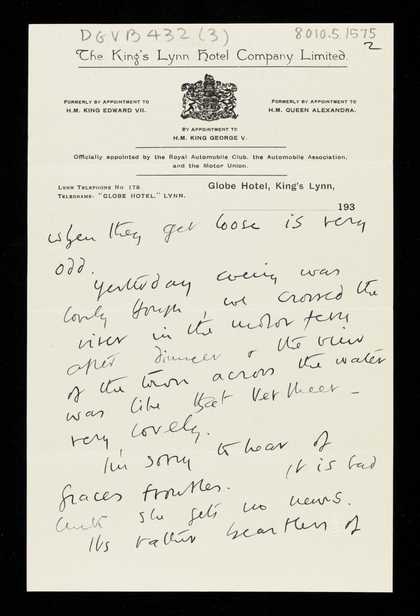 DGVB 432 (3)
8010.5.1575
2
The King's Lynn Hotel Company Limited.
Formerly by Appointment to
H.M. KING EDWARD VII.
Formerly by Appointment to
H.M. QUEEN ALEXANDRA.
By Appointment to
H.M. KING GEORGE V.
Officially appointed by the Royal Automobile Club, the Automobile Association,
and the Motor Union.
Lynn Telephone No 178
Telegrams: "GLOBE HOTEL," LYNN.
Globe Hotel, King's Lynn,
193
when they get loose is very
odd.
Yesterday evening was
lovely though, we crossed the
river in the motor ferry
after dinner & the view
of the town across the water
was like that Vermeer –
very lovely.
I'm sorry to hear of
Graces troubles. It is bad
luck she gets no news.
Its rather heartless of